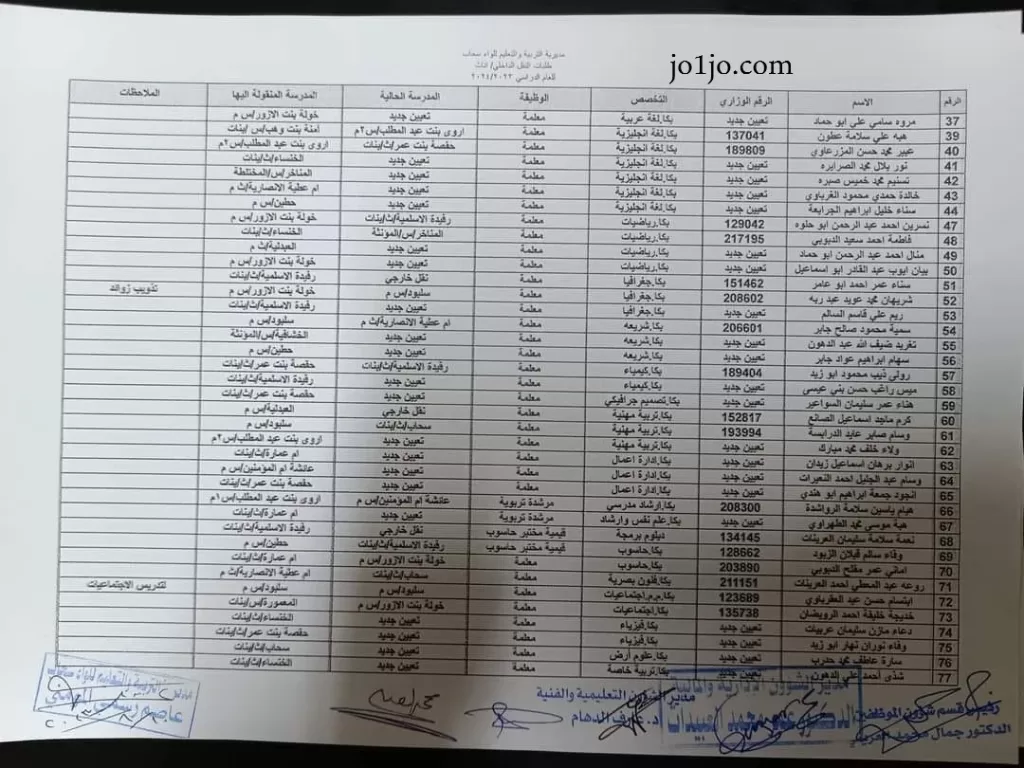 jo1jo.com
مديرية التربية والتعليم للواء سحاب
طلبات النقل الداخلي/ اناث
للعام الدراسي ٢٠٢٤/٢٠٢٣
الرقم الاسم الرقم الوزاري التخصص الوظيفة المدرسة الحالية المدرسة المنقولة اليها الملاحظات
37 مروه سامي علي ابو حماد تعيين جديد بكا.لغة عربية معلمة تعيين جديد خولة بنت الازور/س م
39 هبه علي سلامة عطون 137041 بكا.لغة انجليزية معلمة اروى بنت عبد المطلب/س٢م امنة بنت وهب/س/بنات
40 عبير محمد حسن المزرعاوي 189809 بكا.لغة انجليزية معلمة حفصة بنت عمر/ث/بنات اروى بنت عبد المطلب/س٢م
41 نور بلال محمد الصرايره تعيين جديد بكا.لغة انجليزية معلمة تعيين جديد الخنساء/ث/بنات
42 تسنيم محمد خميس صبره تعيين جديد بكا.لغة انجليزية معلمة تعيين جديد المناخر/س/المختلطة
43 خالدة حمدي محمود الغرباوي تعيين جديد بكا.لغة انجليزية معلمة تعيين جديد ام عطية الانصارية/ث م
44 سناء خليل ابراهيم الجرابعة تعيين جديد بكا.لغة انجليزية معلمة تعيين جديد حطين/س م
47 نسرين احمد عبد الرحمن ابو حلوه 129042 بكا.رياضيات معلمة رفيدة الاسلمية/ث/بنات خولة بنت الازور/س م
48 فاطمة احمد سعيد الدبوبي 217195 بكا.رياضيات معلمة المناخر/س/المؤنثة الخنساء/ث/بنات
49 منال احمد عبد الرحمن ابو حماد تعيين جديد بكا.رياضيات معلمة تعيين جديد العبدلية/ث م
50 بيان ايوب عبد القادر ابو اسماعيل تعيين جديد بكا.رياضيات معلمة تعيين جديد خولة بنت الازور/س م
51 سناء عمر احمد ابو عامر 151462 بكا.جغرافيا معلمة نقل خارجي رفيدة الاسلمية/ث/بنات
52 شريهان محمد عويد عبد ربه 208602 بكا.جغرافيا معلمة سلبود/س م خولة بنت الازور/س م تذويب زوائد
53 ريم علي قاسم السالم تعيين جديد بكا.جغرافيا معلمة تعيين جديد رفيدة الاسلمية/ث/بنات
54 سمية محمود صالح جابر 206601 بكا.شريعه معلمة ام عطية الانصارية/ث م سلبود/س م
55 تغريد ضيف الله عبد الدهون تعيين جديد بكا.شريعه معلمة تعيين جديد الخشافية/س/المؤنثة
56 سهام ابراهيم عواد جابر تعيين جديد بكا.شريعه معلمة تعيين جديد حطين/س م
57 رولى ذيب محمود ابو زيد 189404 بكا.كيمياء معلمة رفيدة الاسلمية/ث/بنات حفصة بنت عمر/ث/بنات
58 ميس راغب حسن بني عيسى تعيين جديد بكا.كيمياء معلمة تعيين جديد رفيدة الاسلمية/ث/بنات
59 هناء عمر سليمان السواعير تعيين جديد بكا.تصميم جرافيكي معلمة تعيين جديد حفصة بنت عمر/ث/بنات
60 كرم ماجد اسماعيل الصانع 152817 بكا.تربية مهنية معلمة نقل خارجي العبدلية/س م
61 وسام صابر عايد الدرابسة 193994 بكا.تربية مهنية معلمة سحاب/ث/بنات سلبود/س م
62 ولاء خلف محمد مبارك تعيين جديد بكا.تربية مهنية معلمة تعيين جديد اروى بنت عبد المطلب/س٢م
63 انوار برهان اسماعيل زيدان تعيين جديد بكا.ادارة اعمال معلمة تعيين جديد ام عمارة/ث/بنات
64 وسام عبد الجليل احمد النعيرات تعيين جديد بكا.ادارة اعمال معلمة تعيين جديد عائشة ام المؤمنين/س م
65 انجود جمعة ابراهيم ابو هندي تعيين جديد بكا.ادارة اعمال معلمة تعيين جديد حفصة بنت عمر/ث/بنات
66 هيام ياسين سلامة الرواشدة 208300 بكا.ارشاد مدرسي مرشدة تربوية عائشة ام المؤمنين/س م اروى بنت عبد المطلب/س١م
67 هبة موسى محمد الطهراوي تعيين جديد بكا.علم نفس وارشاد مرشدة تربوية تعيين جديد ام عمارة/ث/بنات
68 نعمة سلامة سليمان العرينات 134145 دبلوم برمجة قيمية مختبر حاسوب نقل خارجي رفيدة الاسلمية/ث/بنات
69 وفاء سالم قبلان الزيود 128662 بكا.حاسوب قيمية مختبر حاسوب رفيدة الاسلمية/ث/بنات حطين/س م
70 اماني عمر مفلح الدبوبي 203890 بكا.حاسوب معلمة خولة بنت الازور/س م ام عمارة/ث/بنات
71 روعه عبد المعطي احمد العرينات 211151 بكا.فنون بصرية معلمة سحاب/ث/بنات ام عطية الانصارية/ث م
72 ابتسام حسن عبد العقرباوي 123689 بكا.م.م.اجتماعيات معلمة سلبود/س م سلبود/س م لتدريس الاجتماعيات
73 خديجة خليفة احمد الرويضان 135738 بكا.اجتماعيات معلمة خولة بنت الازور/س م المعمورة/س/بنات
74 دعاء مازن سليمان عربيات تعيين جديد بكا.فيزياء معلمة تعيين جديد الخنساء/ث/بنات
75 وفاء نوران نهار ابو زيد تعيين جديد بكا.فيزياء معلمة تعيين جديد حفصة بنت عمر/ث/بنات
76 سارة عاطف محمد حدرب تعيين جديد بكا.علوم أرض معلمة تعيين جديد سحاب/ث/بنات
77 شذى احمد علي الدهون تعيين جديد بكا.تربية خاصة معلمة تعيين جديد الخنساء/ث/بنات
رئيس قسم شؤون الموظفين مدير الشؤون الادارية والمالية مدير الشؤون التعليمية والفنية
الدكتور جمال محمد د. عارف الدهام